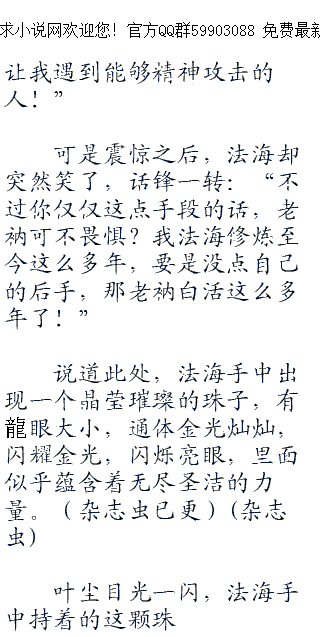 求小说网欢迎您！官方QQ群59903088 免费最新
让我遇到能够精神攻击的
人！”
可是震惊之后，法海却
突然笑了，话锋一转：“不
过你仅仅这点手段的话，老
衲可不畏惧？我法海修炼至
今这么多年，要是没点自己
的后手，那老衲白活这么多
年了！”
说道此处，法海手中出
现一个晶莹璀璨的珠子，有
龍眼大小，通体金光灿灿，
闪耀金光，闪烁亮眼，里面
似乎蕴含着无尽圣洁的力
量。（杂志虫已更）(杂志
虫)
叶尘目光一闪，法海手
中持着的这颗珠